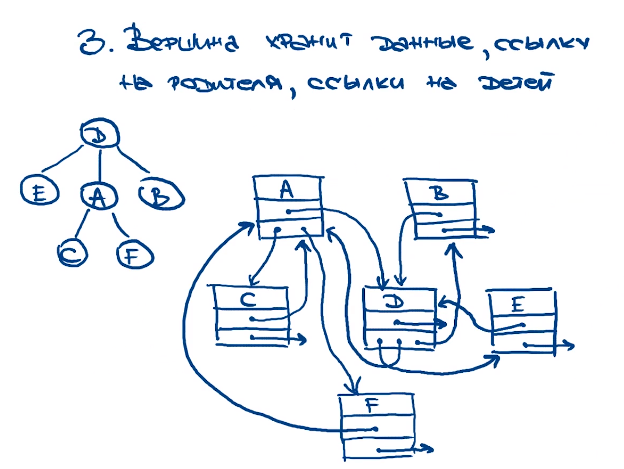 3. Вершина хранит данные, ссылку
на родителя, ссылки на детей
D
E A B
C F
A B
C D E
F